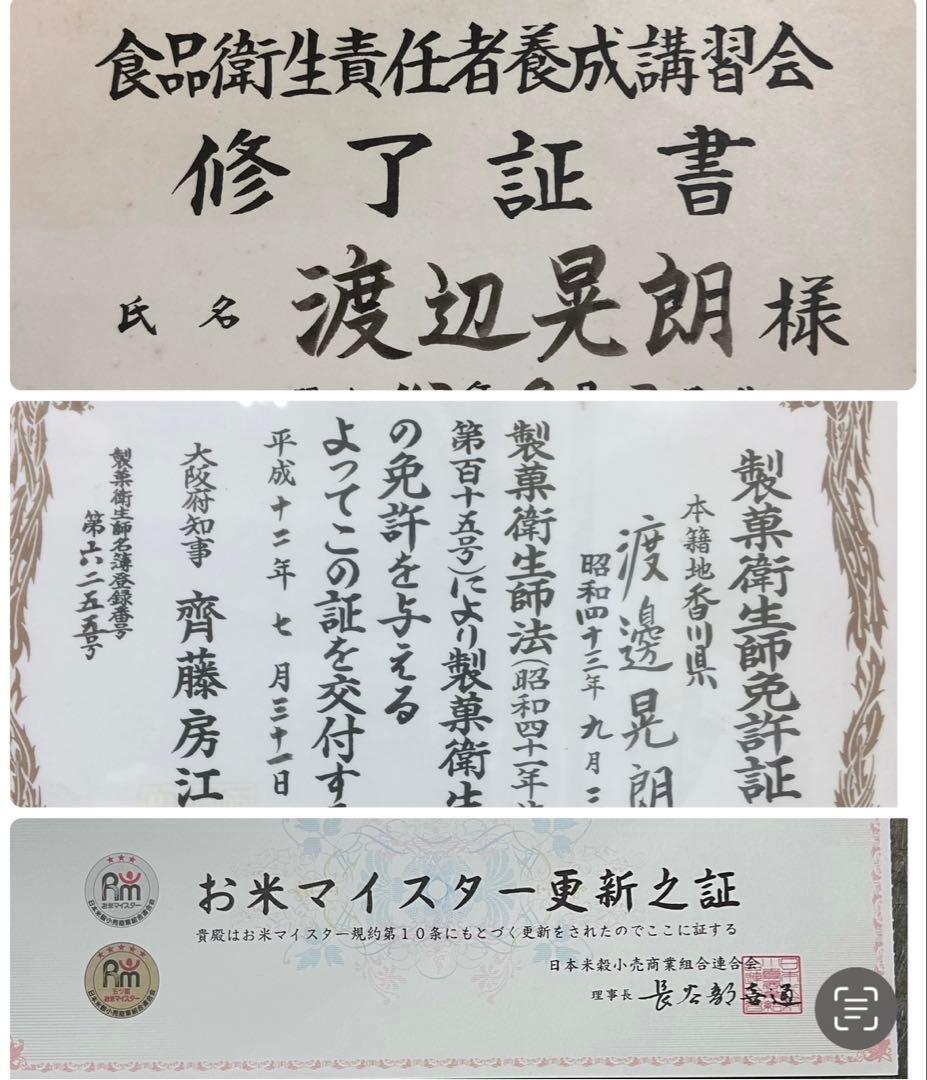 食品衛生責任者養成講習会
修了証書
氏名 渡辺晃朗様
製菓衛生師免許証
本籍地香川県
渡邊晃朗
昭和四十三年九月二
製菓衛生師法(昭和四十一年法
第百十五号)により製菓衛生
の免許を与える
よってこの証を交付す
平成十二年七月三十一日
大阪府知事 齊藤房江
製菓衛生師名簿登録番号
第六二五五号
Rm
お米マイスター
日本米穀小売商業組合連合会
お米マイスター更新之証
貴殿はお米マイスター規約第10条にもとづく更新をされたのでここに証する
Rm
五ツ星
お米マイスター
日本米穀小売商業組合連合会
日本米穀小売商業組合連合会
理事長 長谷部喜通